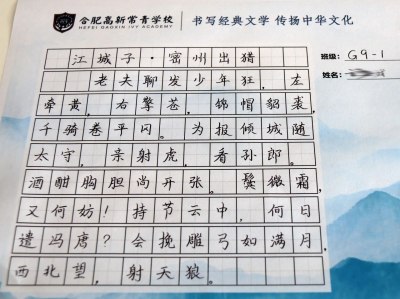 合肥高新常青学校
HEFEI GAOXIN IVY ACADEMY
书写经典文学 传扬中华文化
班级: G9-1
姓名:
江城子·密州出猎
老夫聊发少年狂,左
牵黄,右擎苍,锦帽貂裘,
千骑卷平冈。为报倾城随
太守,亲射虎,看孙郎。
酒酣胸胆尚开张。鬓微霜,
又何妨!持节云中,何日
遣冯唐?会挽雕弓如满月,
西北望,射天狼。